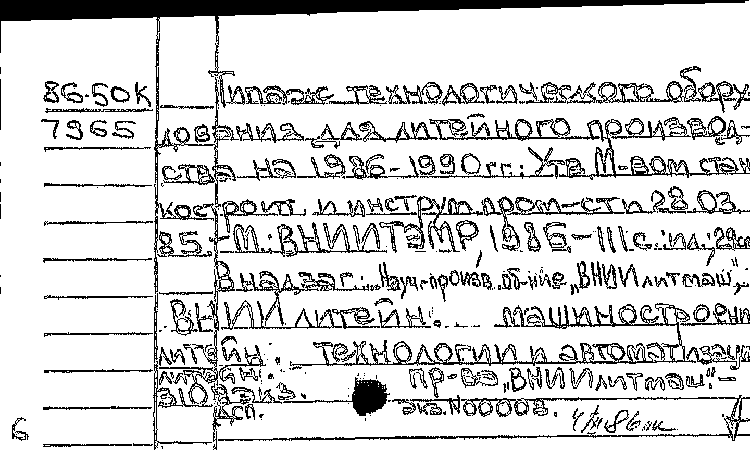 86-50К Типаж технологического обору-
7965 дования для литейного производ-
ства на 1986-1990 гг.: Утв. М-вом стан
костроит. и инструм. пром-сти 28.03.
85.-М.: ВНИИТЭМР, 1986.-111с.: ил.; 29см
В надзаг.: Науч.-произв. об-ние „ВНИИлитмаш",
ВНИИ литейн. машиностроени
литейн. технологии и автоматизац
литейн. пр-ва „ВНИИлитмаш".-
310 экз.
дсп. экз. N00008.
6